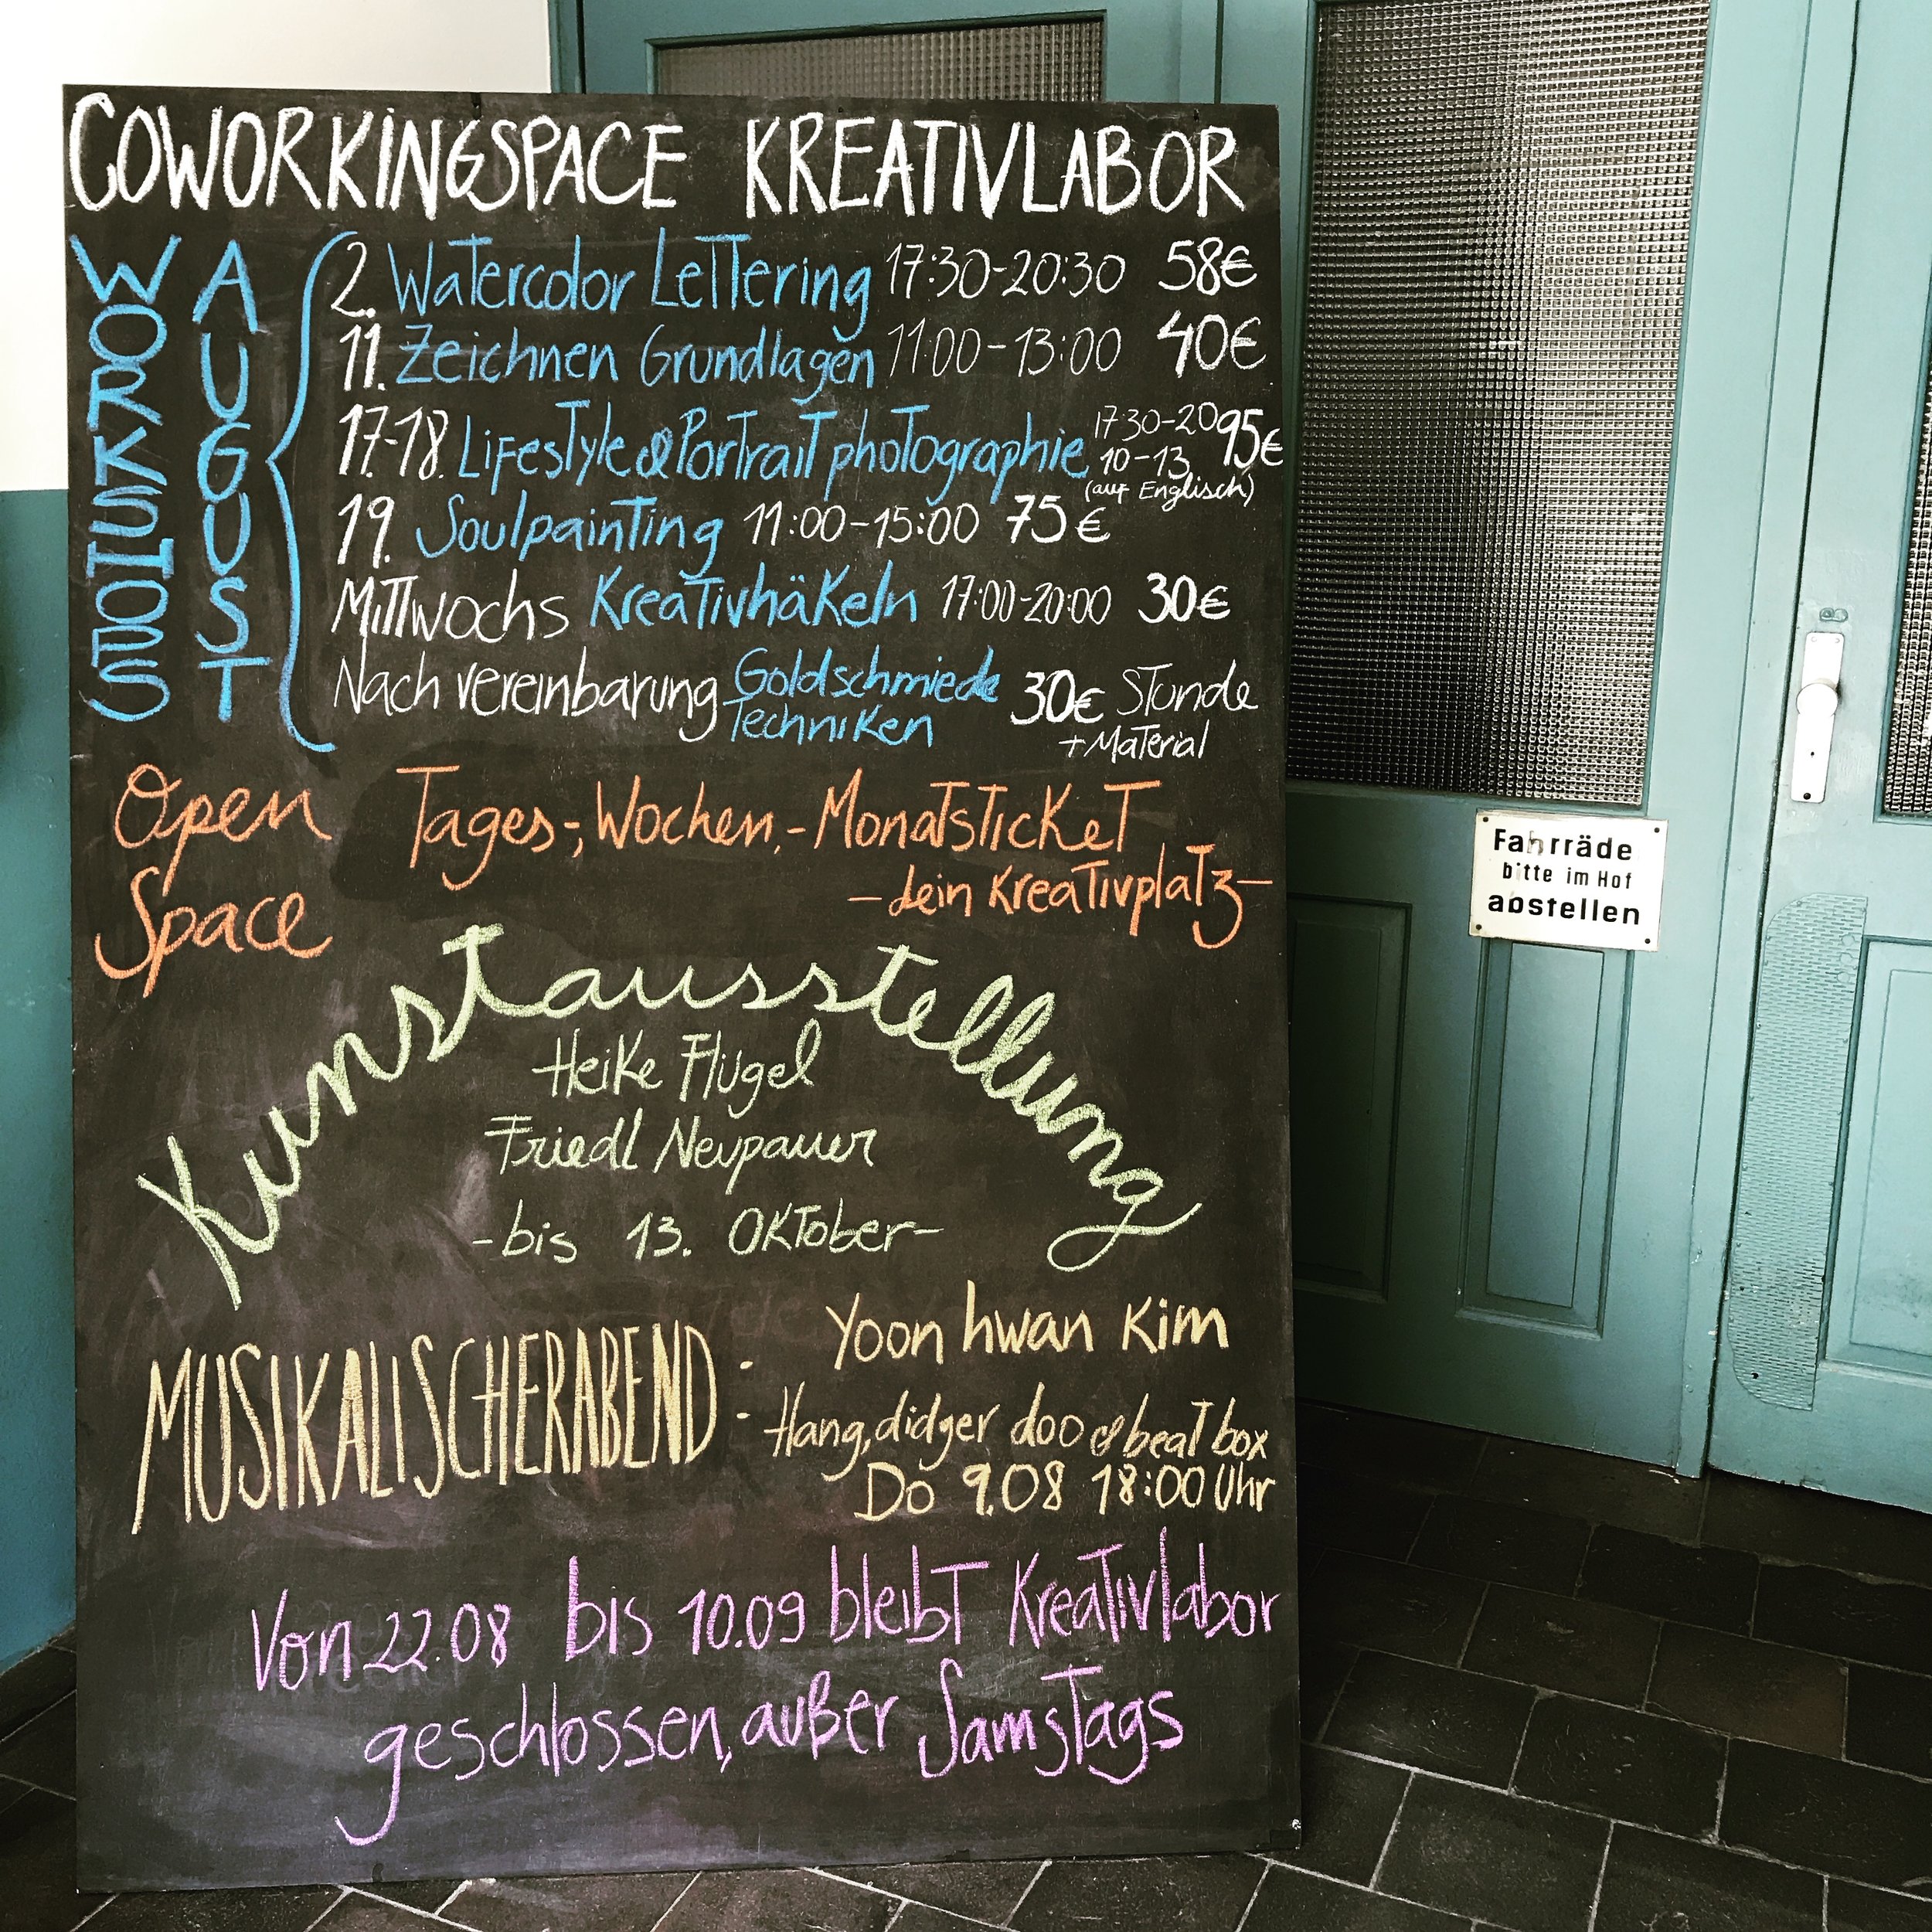 COWORKINGSPACE KREATIVLABOR
WORKSHOPS
AUGUST
2. Watercolor Lettering 17:30-20:30 58€
11. Zeichnen Grundlagen 11:00-13:00 40€
17.-18. Lifestyle & Portrait photographie 17:30-20 95€
10-13
(auf Englisch)
19. Soulpainting 11:00-15:00 75€
Mittwochs Kreativhäkeln 17:00-20:00 30€
Nach vereinbarung Goldschmiede Techniken 30€ Stunde
+ Material
Open Space
Tages-, Wochen,- Monatsticket
- dein Kreativplatz -
Kunstausstellung
Heike Flügel
Friedl Neupauer
- bis 13. Oktober -
MUSIKALISCHERABEND:
Yoon hwan Kim
- Hang, didger doo & beat box
Do 9.08 18:00 Uhr
Von 22.08 bis 10.09 bleibt Kreativlabor
geschlossen, außer Samstags
Fahrräde
bitte im Hof
abstellen